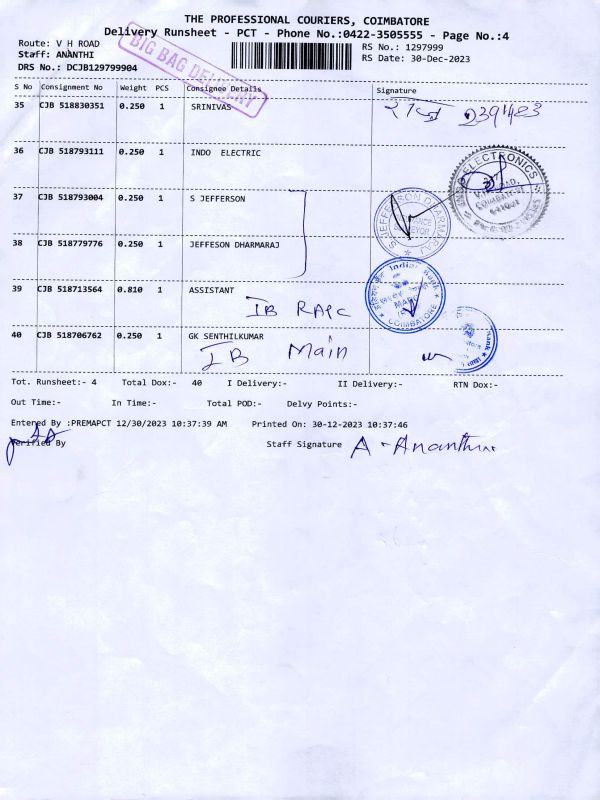 THE PROFESSIONAL COURIERS, COIMBATORE
Delivery Runsheet - PCT - Phone No.:0422-3505555 - Page No.:4
Route: V H ROAD
Staff: ANANTHI
DRS No.: DCJB129799904
RS No.: 1297999
RS Date: 30-Dec-2023
BIG BAG DELIVERY
S No Consignment No Weight PCS Consignee Details Signature
35 CJB 518830351 0.250 1 SRINIVAS
36 CJB 518793111 0.250 1 INDO ELECTRIC
ELECTRONICS
37 CJB 518793004 0.250 1 S JEFFERSON
S. JEFFERSON DHARMARAJ
38 CJB 518779776 0.250 1 JEFFESON DHARMARAJ
39 CJB 518713564 0.810 1 ASSISTANT
IB RAPC
Indian Bank
COIMBATORE
40 CJB 518706762 0.250 1 GK SENTHILKUMAR
IB Main
Tot. Runsheet:- 4 Total Dox:- 40 I Delivery:- II Delivery:- RTN Dox:-
Out Time:- In Time:- Total POD:- Delvy Points:-
Entered By :PREMAPCT 12/30/2023 10:37:39 AM Printed On: 30-12-2023 10:37:46
Verified By Staff Signature A - Ananthi